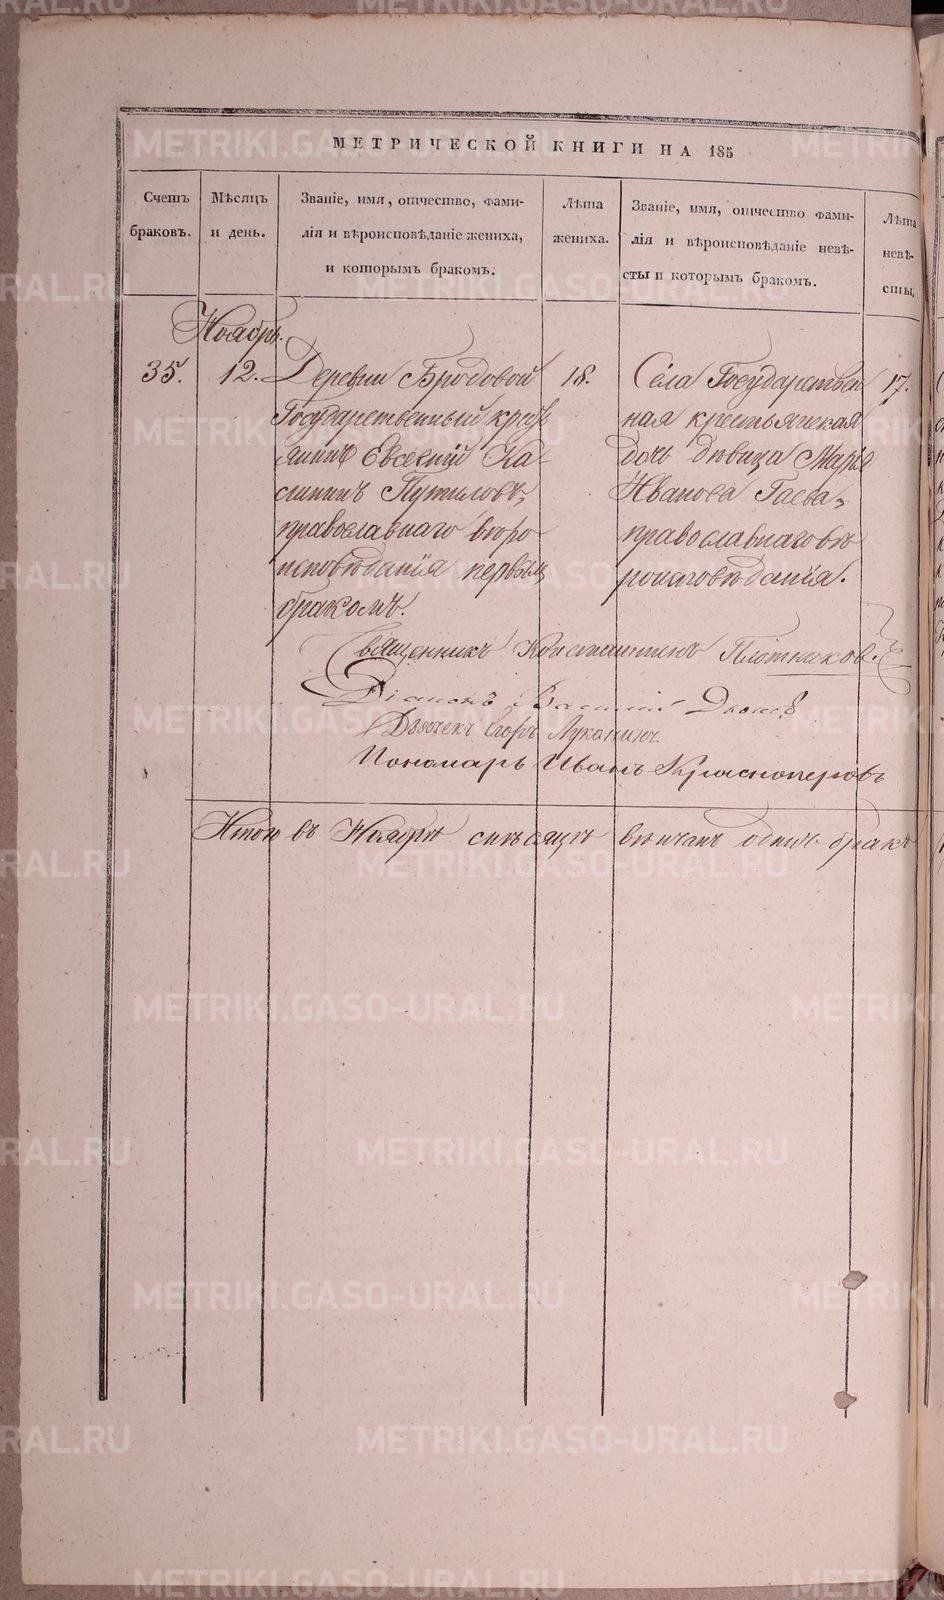 МЕТРИЧЕСКОЙ КНИГИ НА 185
Счетъ
браковъ.
Мѣсяцъ
и день.
Званіе, имя, отчество, фами-
лія и вѣроисповѣданіе жениха,
и которымъ бракомъ.
Лѣта
жениха.
Званіе, имя, отчество фами-
лія и вѣроисповѣданіе невѣ-
сты и которымъ бракомъ.
Лѣта
невѣ-
сты,
Ноябрь.
35.
12.
Деревни Бродовой
Государственный крестъ
янинъ Евсевій Ка-
Путиловъ,
православнаго вѣро
исповѣданія первымъ
бракомъ.
18.
Села Государствен
ная крестьянская
дочь дѣвица Марія
Иванова Гаева,
православнаго вѣ
роисповѣданія.
17.
Священникъ Константинъ Плотниковъ.
Діаконъ Василій
Дьячекъ Егоръ Луканинъ.
Пономарь Иванъ Красноперовъ
Итого въ Ноябрѣ мѣсяцѣ вѣнчанъ одинъ бракъ
METRIKI.GASO-URAL.RU